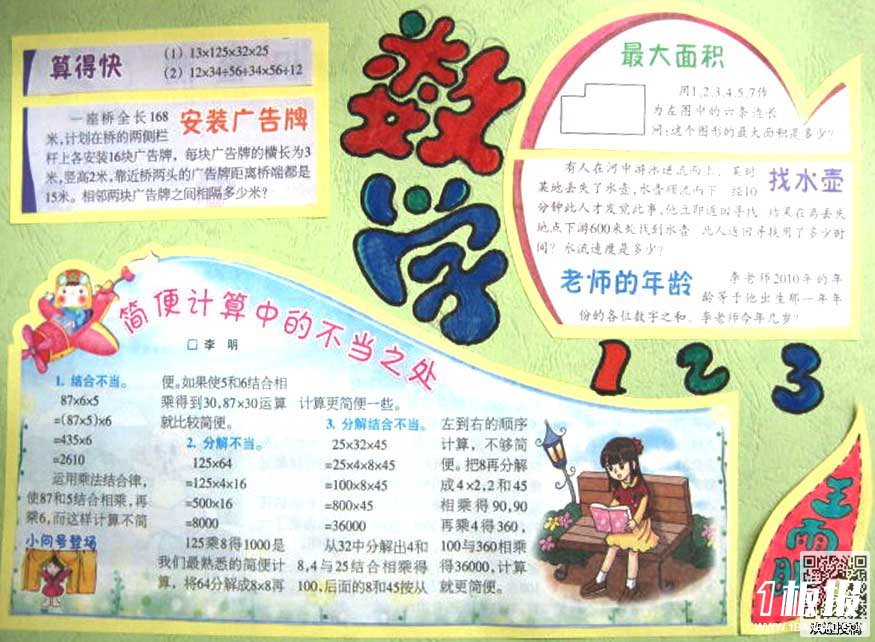 算得快
(1) 13×125×32×25
(2) 12×34÷56÷34×56÷12
安装广告牌
一座桥全长168
米,计划在桥的两侧栏
杆上各安装16块广告牌,每块广告牌的横长为3
米,竖高2米,靠近桥两头的广告牌距离桥端都是
15米。相邻两块广告牌之间相隔多少米?
数
学
最大面积
用1,2,3,4,5,7作
为左图中的六条边长
问:这个图形的最大面积是多少?
找水壶
有人在河中游泳逆流而上,某时
某地丢失了水壶,水壶顺流而下 经10
分钟此人才发觉此事,他立即返回寻找 结果在离丢失
地点下游600米处找到水壶 此人返回寻找用了多少时
间?水流速度是多少?
老师的年龄
李老师2010年的年
龄等于他出生那一年年
份的各位数字之和。李老师今年几岁?
1 2 3
简便计算中的不当之处
□ 李 明
1. 结合不当。
87×6×5
=(87×5)×6
=435×6
=2610
运用乘法结合律,
使87和5结合相乘,再
乘6,而这样计算不简
便。如果使5和6结合相
乘得到30,87×30运算
就比较简便。
2. 分解不当。
125×64
=125×4×16
=500×16
=8000
125乘8得1000是
我们最熟悉的简便计
算,将64分解成8×8再
计算更简便一些。
3. 分解结合不当。
25×32×45
=25×4×8×45
=100×8×45
=800×45
=36000
从32中分解出4和
8,4与25结合相乘得
100,后面的8和45按从
左到右的顺序
计算,不够简
便。把8再分解
成4×2,2和45
相乘得90,90
再乘4得360,
100与360相乘
得36000,计算
就更简便。
小问号登场
王雨
1板报